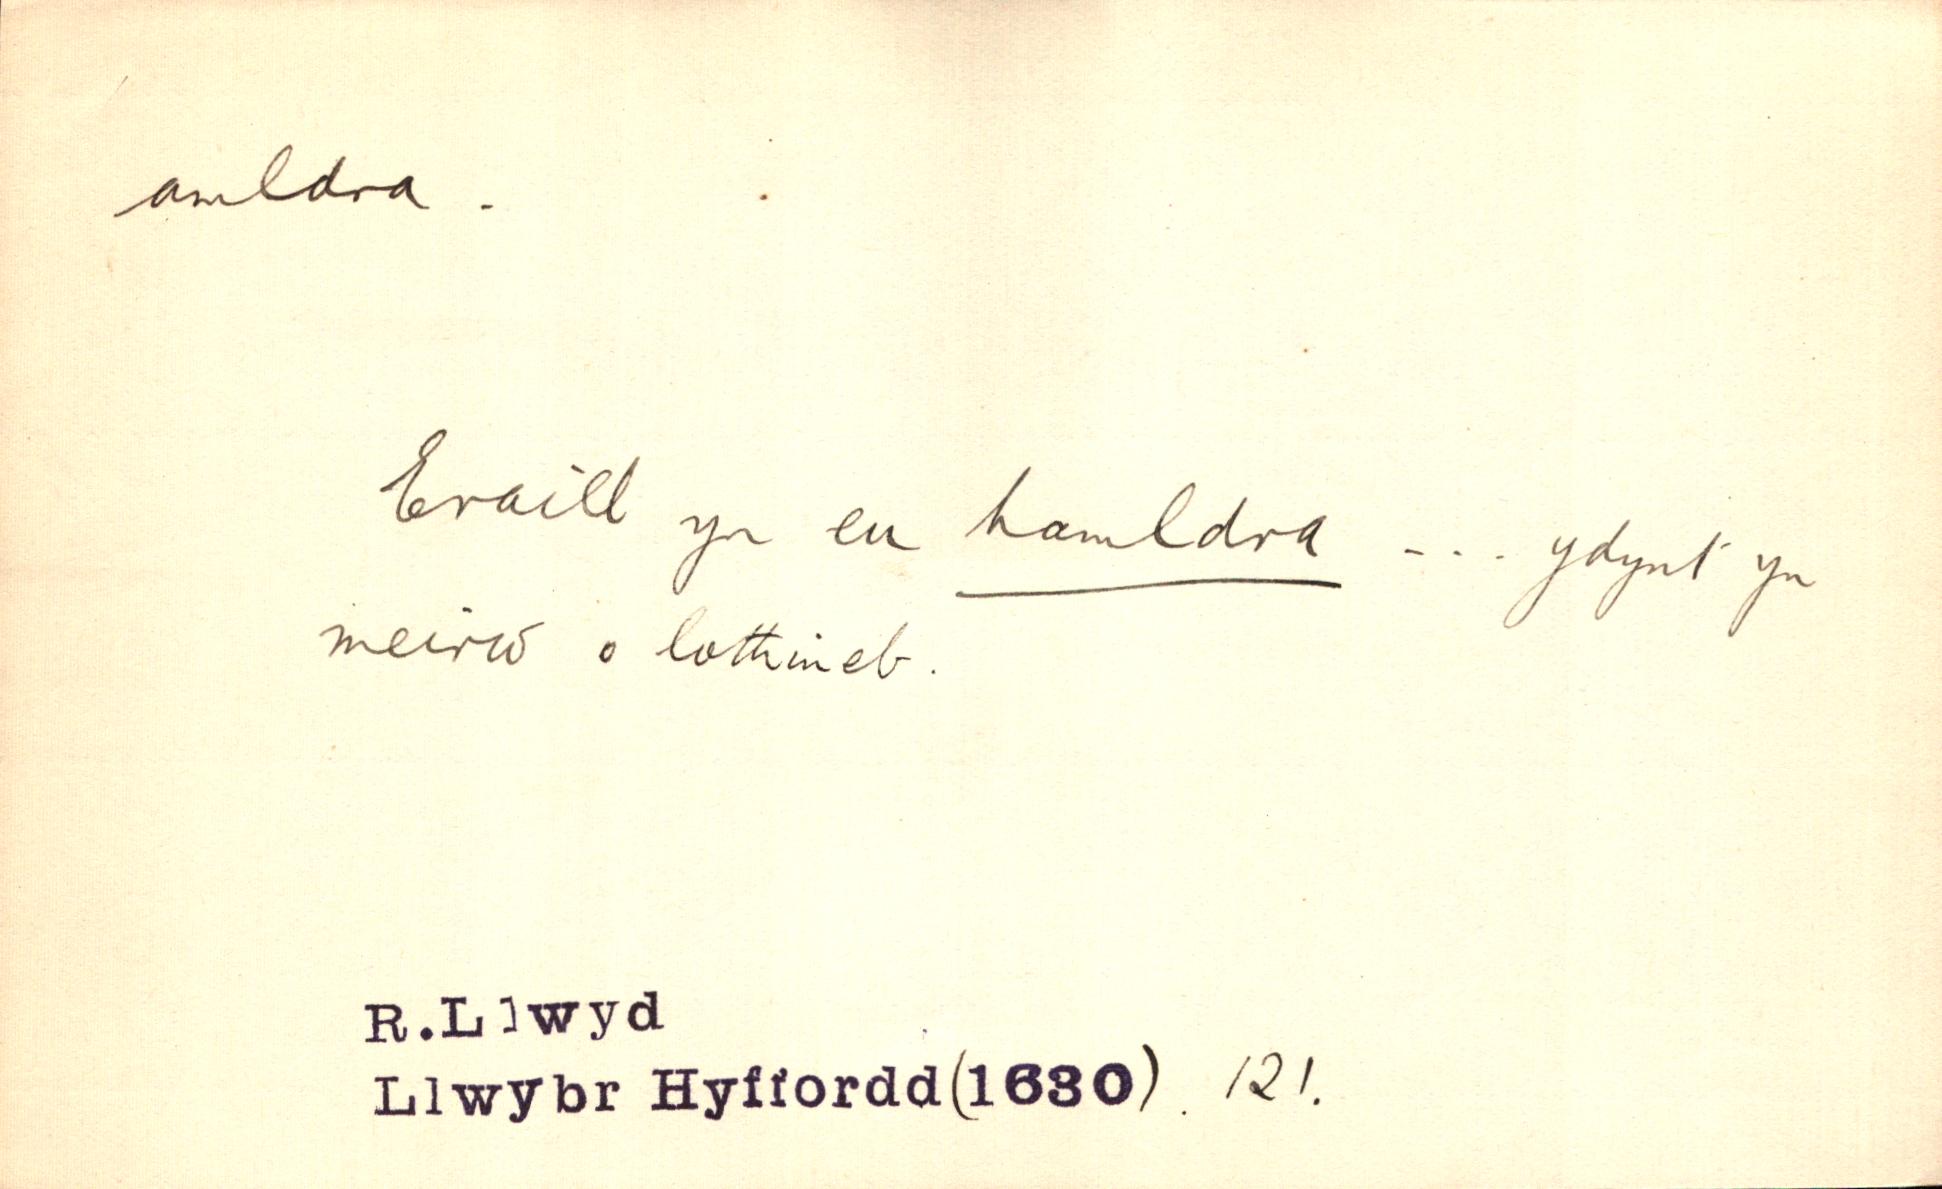 amldra .
Eraill yn eu hamldra - - - ydynt yn
meirw o lothineb .
R.Llwyd
Llwybr Hyffordd (1630) . 121.